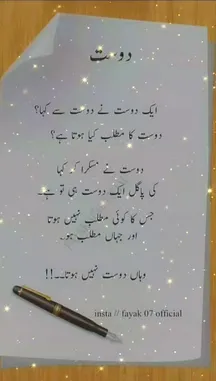 دوست
ایک دوست نے دوست سے کہا؟
دوست کا مطلب کیا ہوتا ہے؟
دوست نے مسکرا کہ کہا
کی پاگل ایک دوست ہی تو ہے۔
جس کا کوئی مطلب نہیں ہوتا
اور جہاں مطلب ہو۔
وہاں دوست نہیں ہوتا۔۔!!
insta // fayak 07 official